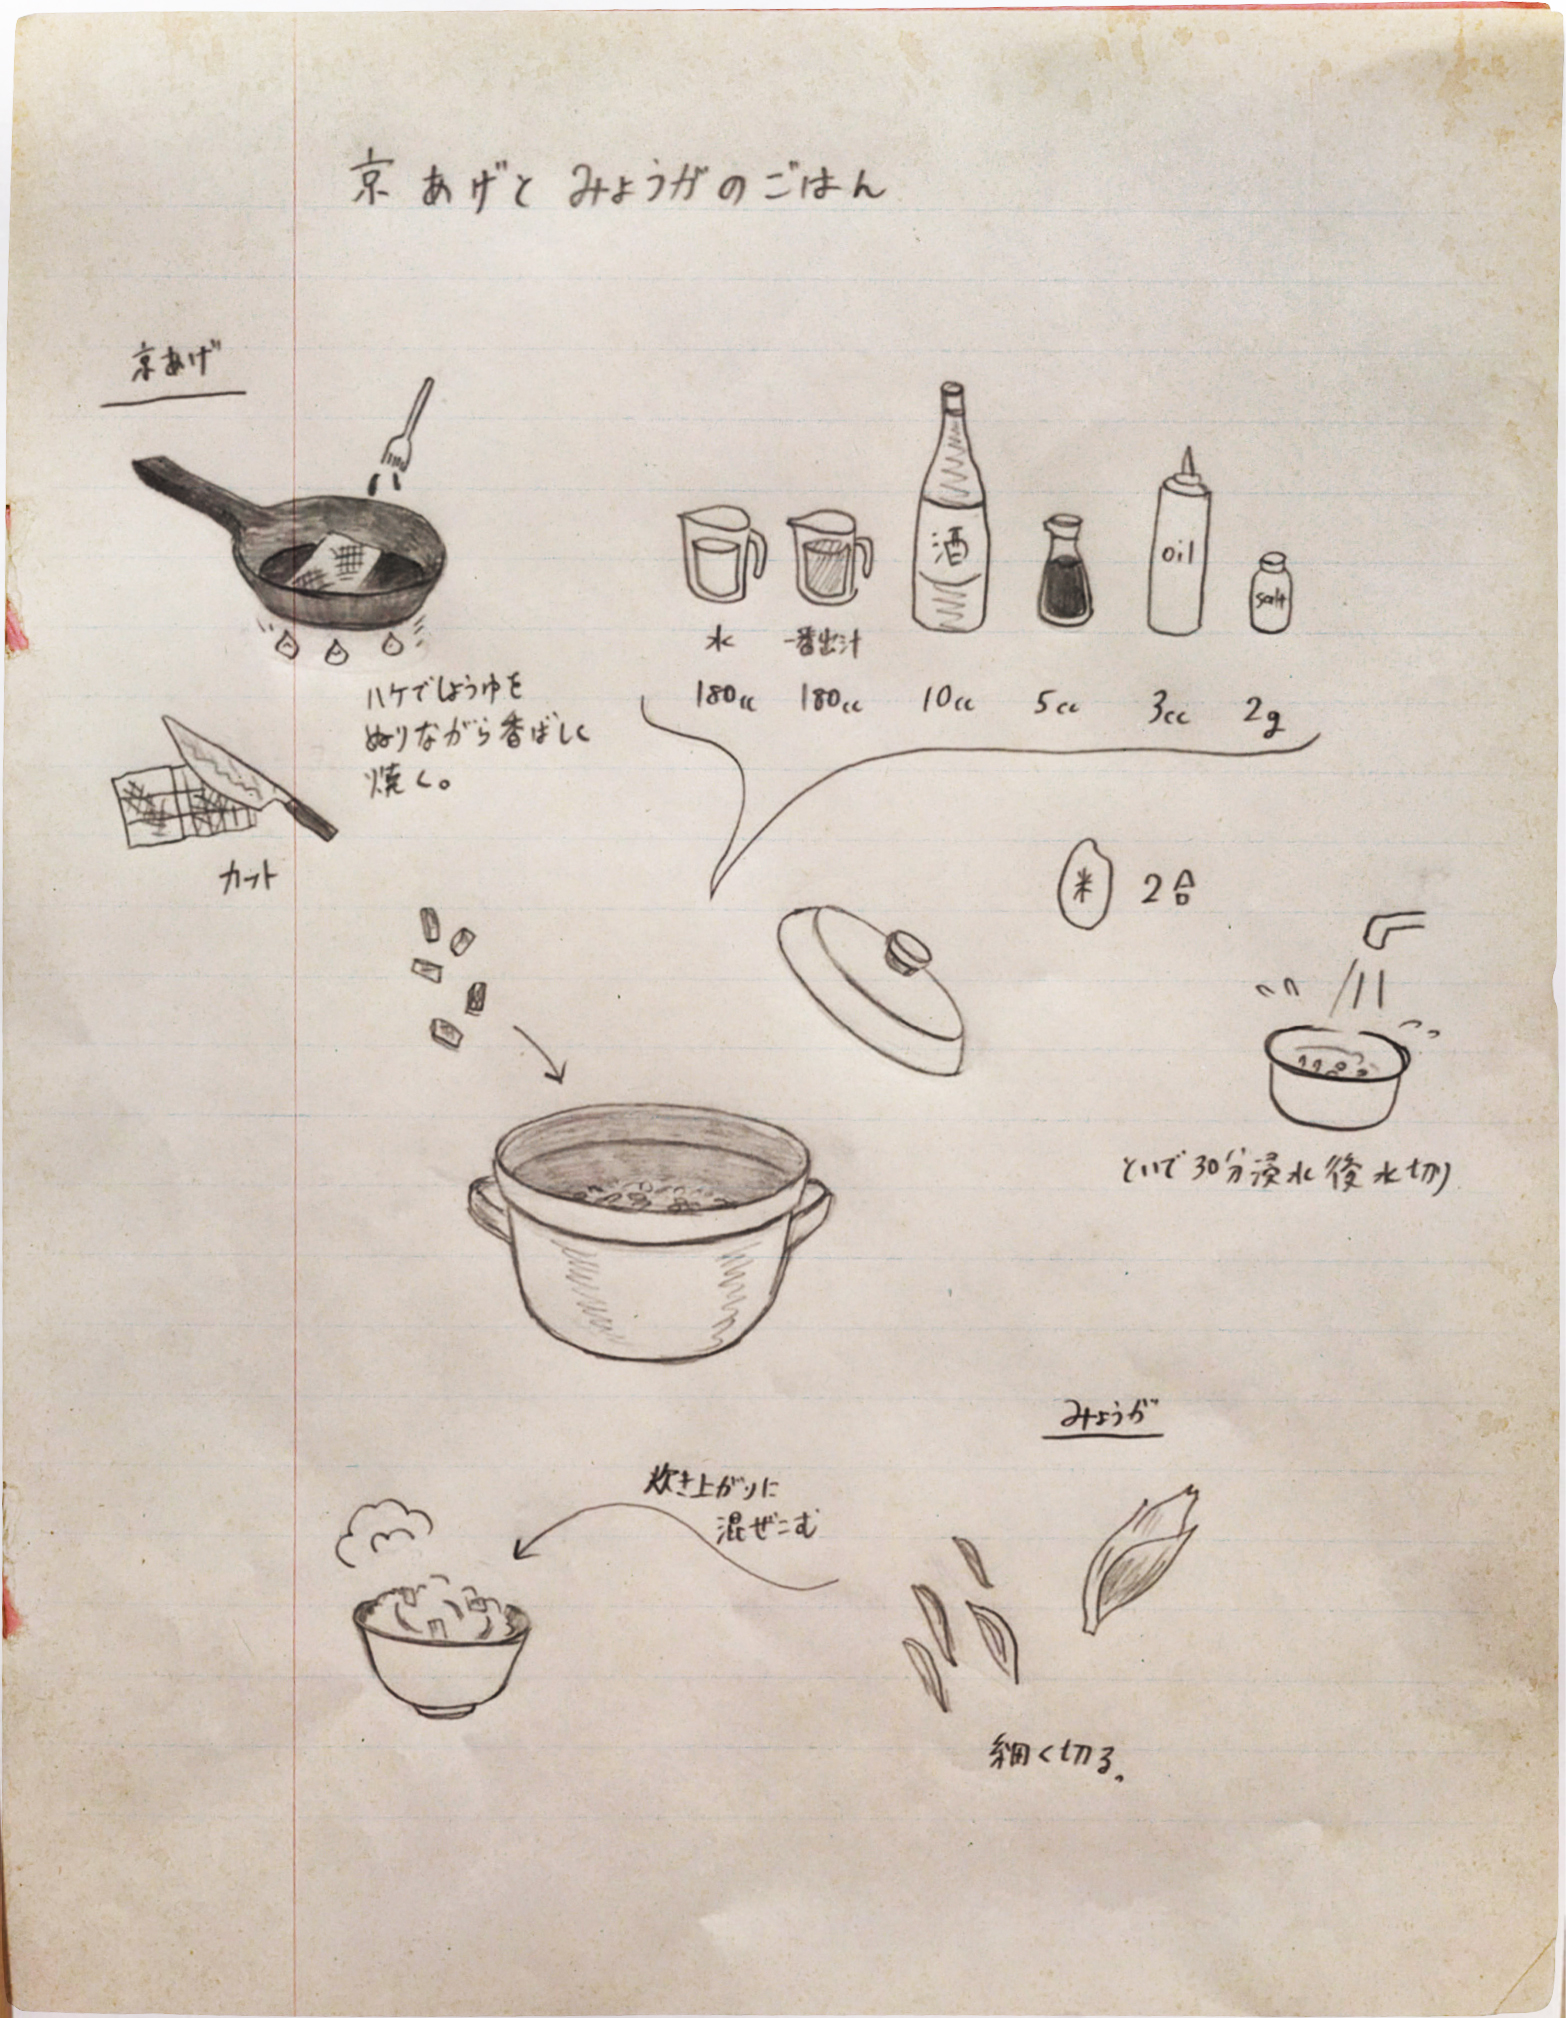 京あげとみょうがのごはん
京あげ
ハケでしょうゆを
ぬりながら香ばしく
焼く。
カット
酒
oil
salt
水
一番出汁
180cc
180cc
10cc
5cc
3cc
2g
米
2合
といで30分浸水後水切り
みょうが
炊き上がりに
混ぜこむ
細く切る。